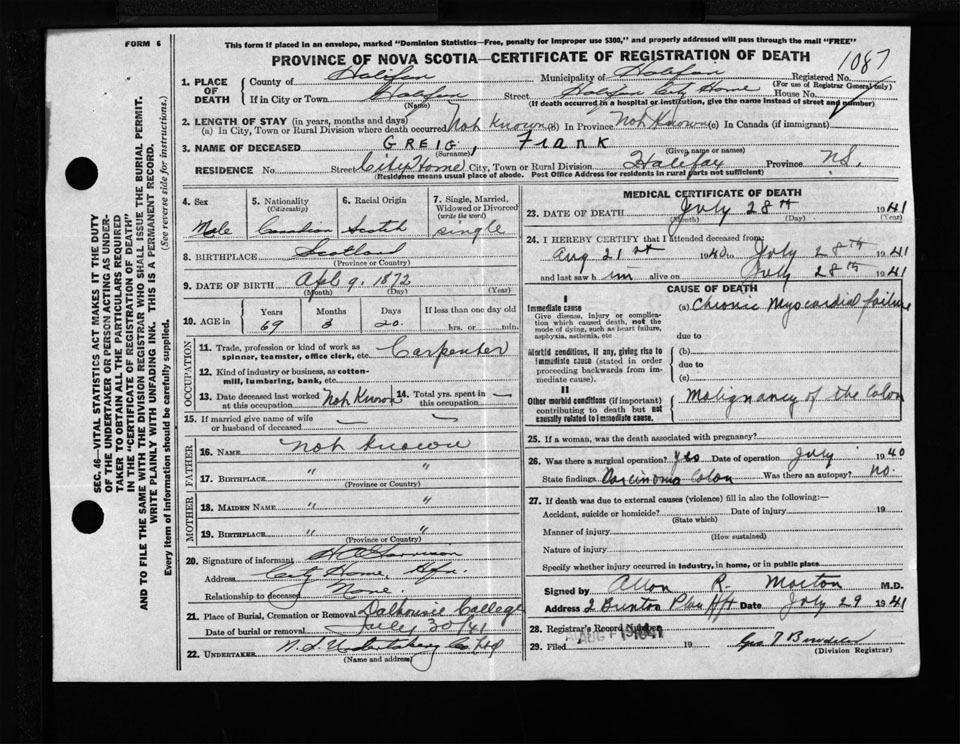 FORM 6
This form if placed in an envelope, marked "Dominion Statistics—Free, penalty for improper use $300," and properly addressed will pass through the mail "FREE"
PROVINCE OF NOVA SCOTIA—CERTIFICATE OF REGISTRATION OF DEATH
1087
1. PLACE OF DEATH County of Halifax Municipality of Halifax Registered No.
(For use of Registrar General only)
If in City or Town Halifax Street Halifax City Home House No.
(Name) (If death occurred in a hospital or institution, give the name instead of street and number)
2. LENGTH OF STAY (in years, months and days)
(a) In City, Town or Rural Division where death occurred Not Known (b) In Province Not Known (c) In Canada (if immigrant)
3. NAME OF DECEASED GREIG, Frank
(Surname) (Given name or names)
RESIDENCE No. Street City Home City, Town or Rural Division Halifax Province N.S.
(Residence means usual place of abode. Post Office Address for residents in rural parts not sufficient)
4. Sex 5. Nationality (Citizenship) 6. Racial Origin 7. Single, Married, Widowed or Divorced (write the word)
Male Canadian Scotch Single
8. BIRTHPLACE Scotland
(Province or Country)
9. DATE OF BIRTH Apl 9. 1872
(Month) (Day) (Year)
10. AGE in Years Months Days If less than one day old
69 3 20 hrs. or min.
OCCUPATION
11. Trade, profession or kind of work as spinner, teamster, office clerk, etc. Carpenter
12. Kind of industry or business, as cotton-mill, lumbering, bank, etc.
13. Date deceased last worked at this occupation Not Known 14. Total yrs. spent in this occupation —
15. If married give name of wife or husband of deceased —
FATHER
16. NAME not known
17. BIRTHPLACE " "
(Province or Country)
MOTHER
18. MAIDEN NAME " "
19. BIRTHPLACE " "
(Province or Country)
20. Signature of informant H A Harrison
Address City Home, Hfx.
Relationship to deceased None.
21. Place of Burial, Cremation or Removal Dalhousie College
Date of burial or removal July 30/41
22. UNDERTAKER N.S. Undertaking Co. Ltd
(Name and address)
MEDICAL CERTIFICATE OF DEATH
23. DATE OF DEATH July 28th 1941
(Month) (Day) (Year)
24. I HEREBY CERTIFY that I attended deceased from:
Aug 21st 1940 to July 28th 1941
and last saw him alive on July 28th 1941
CAUSE OF DEATH
I
Immediate cause (a) Chronic Myocardial failure
Give disease, injury or complication which caused death, not the mode of dying, such as heart failure, asphyxia, asthenia, etc due to
Morbid conditions, if any, giving rise to immediate cause (stated in order proceeding backwards from immediate cause). (b)
due to
(c)
II
Other morbid conditions (if important) contributing to death but not causally related to immediate cause. Malignancy of the Colon
25. If a woman, was the death associated with pregnancy?
26. Was there a surgical operation? Yes Date of operation July 1940
State findings Carcinoma Colon Was there an autopsy? no.
27. If death was due to external causes (violence) fill in also the following:—
Accident, suicide or homicide? Date of injury 19
(State which)
Manner of injury
(How sustained)
Nature of injury
Specify whether injury occurred in industry, in home, or in public place
Signed by Allan R. Morton M.D.
Address Date July 29 1941
28. Registrar's Record Number
29. Filed AUG 1941 19
(Division Registrar)
SEC. 46—VITAL STATISTICS ACT MAKES IT THE DUTY
OF THE UNDERTAKER OR PERSON ACTING AS UNDERTAKER TO OBTAIN ALL THE PARTICULARS REQUIRED
IN THE "CERTIFICATE OF REGISTRATION OF DEATH"
AND TO FILE THE SAME WITH THE DIVISION REGISTRAR WHO SHALL ISSUE THE BURIAL PERMIT.
WRITE PLAINLY WITH UNFADING INK. THIS IS A PERMANENT RECORD.
Every item of information should be carefully supplied. (See reverse side for instructions.)